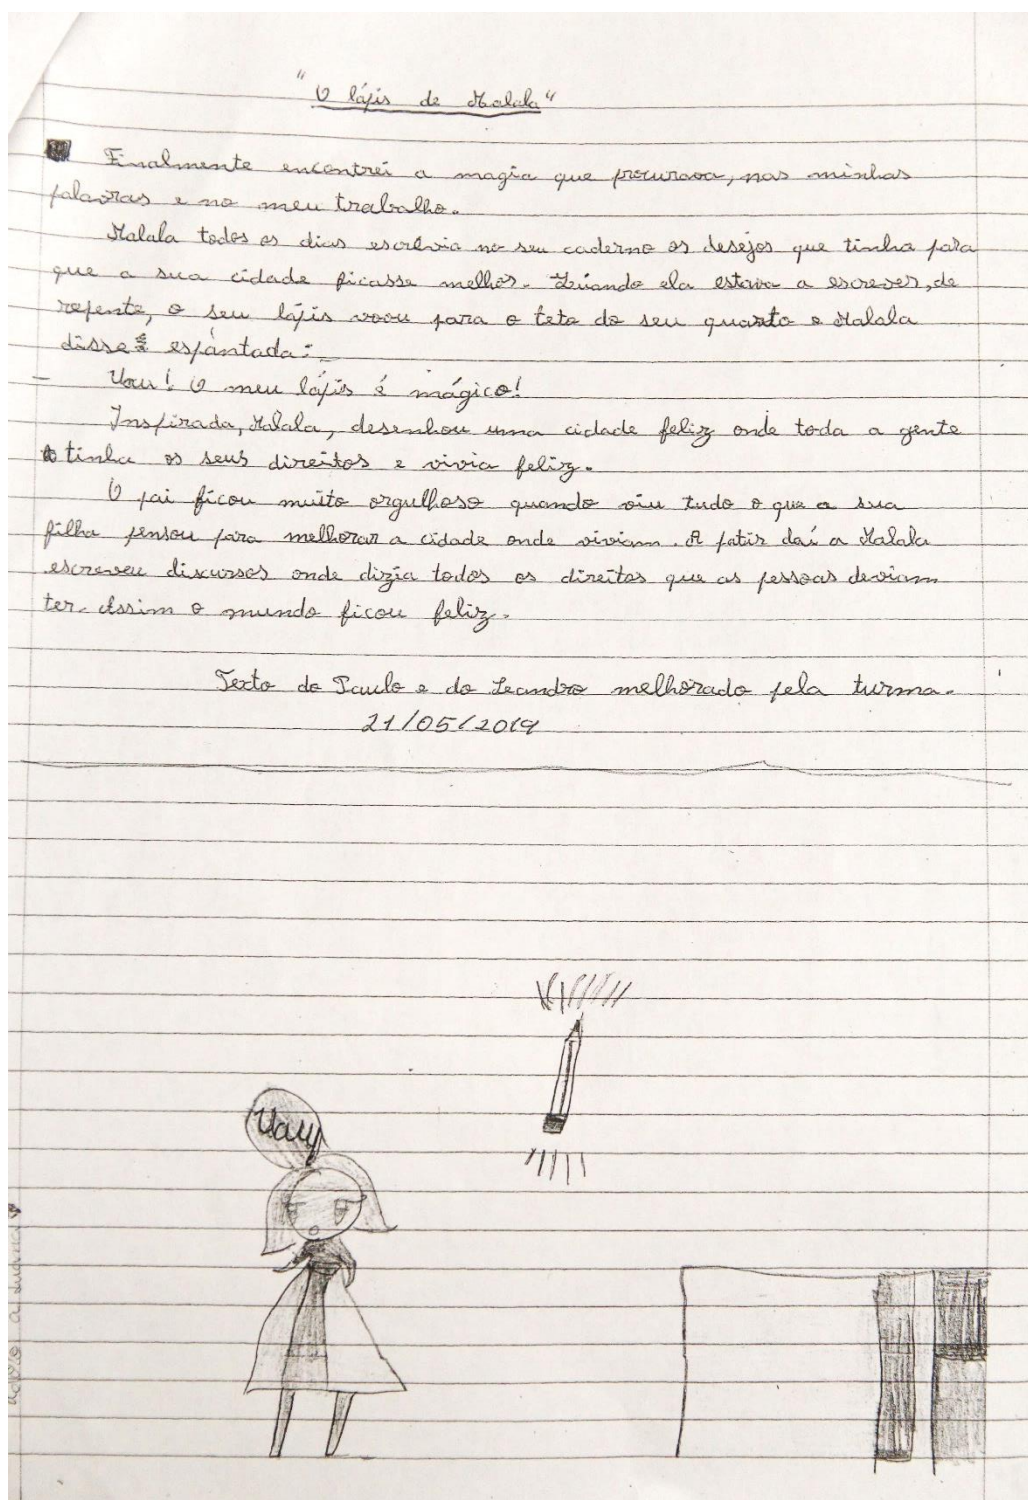 "O lápis de Malala"
Finalmente encontrei a magia que procurava, nas minhas
palavras e no meu trabalho.
Malala todos os dias escrevia no seu caderno os desejos que tinha para
que a sua cidade ficasse melhor. Quando ela estava a escrever, de
repente, o seu lápis voou para o teto do seu quarto e Malala
disse espantada:
- Uau! O meu lápis é mágico!
Inspirada, Malala, desenhou uma cidade feliz onde toda a gente
tinha os seus direitos e vivia feliz.
O pai ficou muito orgulhoso quando viu tudo o que a sua
filha pensou para melhorar a cidade onde viviam. A patir daí a Malala
escreveu discursos onde dizia todos os direitos que as pessoas deviam
ter. Assim o mundo ficou feliz.
Texto do Paulo e do Leandro melhorado pela turma.
21/05/2019
Uau